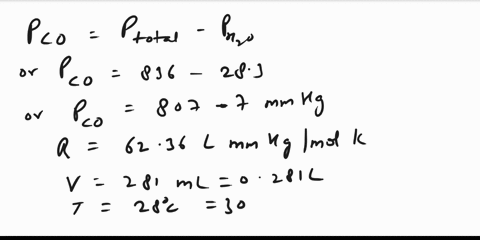 P_CO = P_total - P_H₂O
or P_CO = 836 - 28.3
or P_CO = 807.7 mm Hg
R = 62.36 L mm Hg/mol K
V = 281 mL = 0.281L
T = 28°C = 30